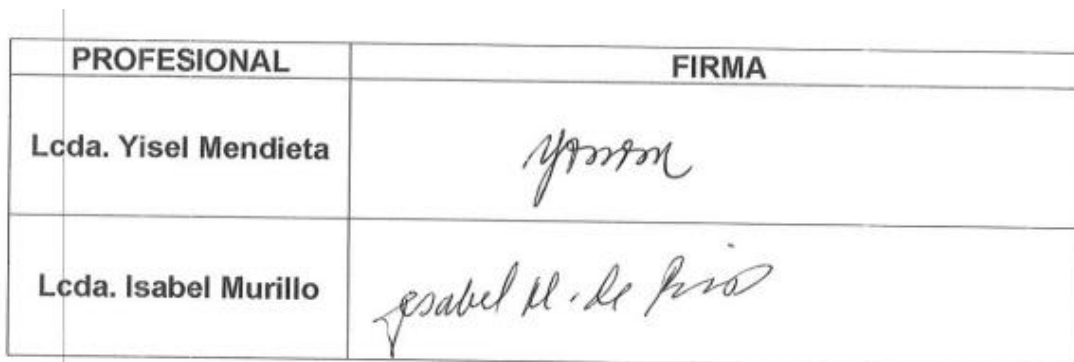 PROFESIONAL FIRMA
Lcda. Yisel Mendieta
Lcda. Isabel Murillo Isabel M. de